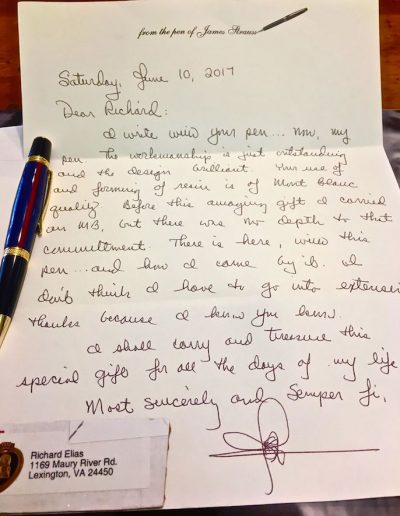 from the pen of James Strauss
Saturday, June 10, 2017
Dear Richard:
I write with your pen... now, my
pen. The workmanship is just outstanding
and the design brilliant. Your use of
and forming of resin is of Mont Blanc
quality. Before this amazing gift I carried
an MB, but there was no depth to that
committment. There is here, with this
pen... and how I came by it. I
don't think I have to go into extensive
thanks because I know you know.
I shall carry and treasure this
special gift for all the days of my life.
Most sincerely and Semper fi,
Richard Elias
1169 Maury River Rd.
Lexington, VA 24450